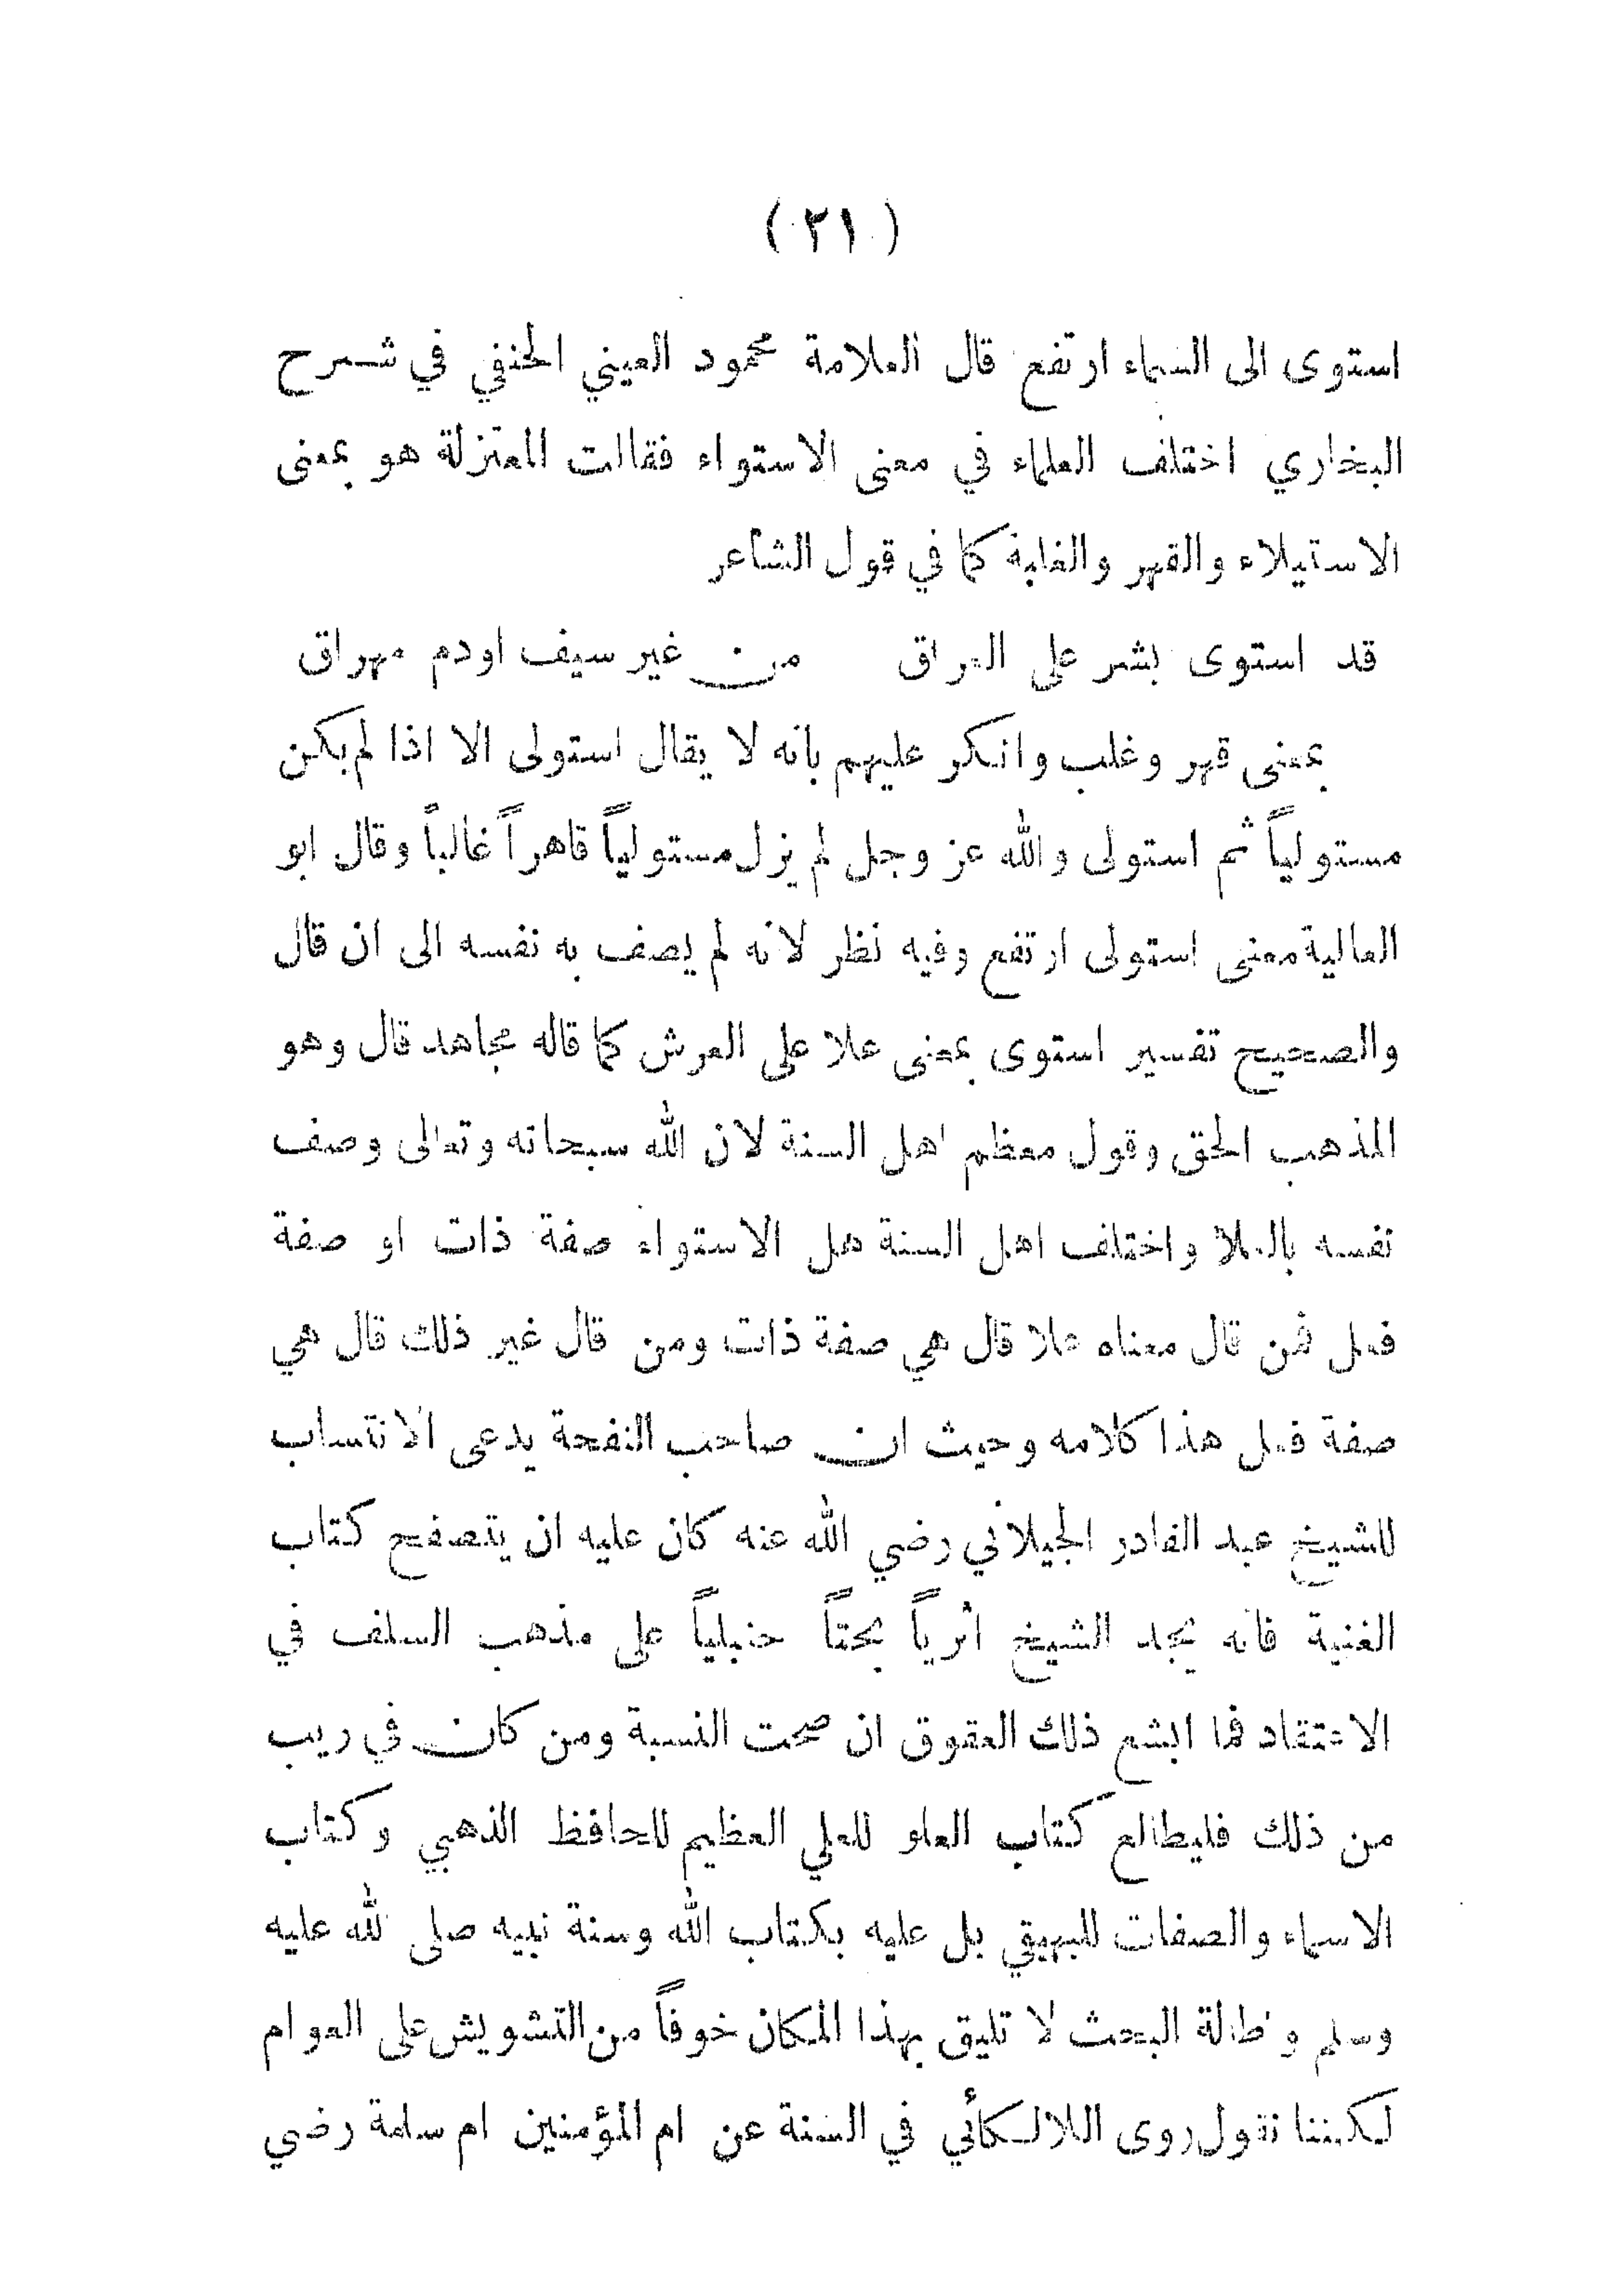 ( ٢١ )
استوى الى السماء ارتفع قال العلامة محمود العيني الحنفي في شرح
البخاري اختلف العلماء في معنى الاستواء فقالت المعتزلة هو بمعنى
الاستيلاء والقهر والغلبة كما في قول الشاعر
قد استوى بشر على العراق من غير سيف اودم مهراق
بمعنى قهر وغلب وانكر عليهم بانه لا يقال استولى الا اذا لم يكن
مستولياً ثم استولى والله عز وجل لم يزل مستولياً قاهراً غالباً وقال ابو
العالية معنى استولى ارتفع وفيه نظر لانه لم يصف به نفسه الى ان قال
والصحيح تفسير استوى بمعنى علا على العرش كما قاله مجاهد قال وهو
المذهب الحق وقول معظم اهل السنة لان الله سبحانه وتعالى وصف
نفسه بالعلا واختلف اهل السنة هل الاستواء صفة ذات او صفة
فعل فمن قال معناه علا قال هي صفة ذات ومن قال غير ذلك قال هي
صفة فعل هذا كلامه وحيث ان صاحب النفحة يدعى الانتساب
للشيخ عبد القادر الجيلاني رضي الله عنه كان عليه ان يتصفح كتاب
الغنية فانه يجد الشيخ اثرياً بحتاً حنبلياً على مذهب السلف في
الاعتقاد فما ابشع ذلك العقوق ان صحت النسبة ومن كان في ريب
من ذلك فليطالع كتاب العلو للعلي العظيم للحافظ الذهبي وكتاب
الاسماء والصفات للبيهقي بل عليه بكتاب الله وسنة نبيه صلى الله عليه
وسلم واطالة البحث لا تليق بهذا المكان خوفاً من التشويش على العوام
لكننا نقول روى اللالكائي في السنة عن ام المؤمنين ام سلمة رضي